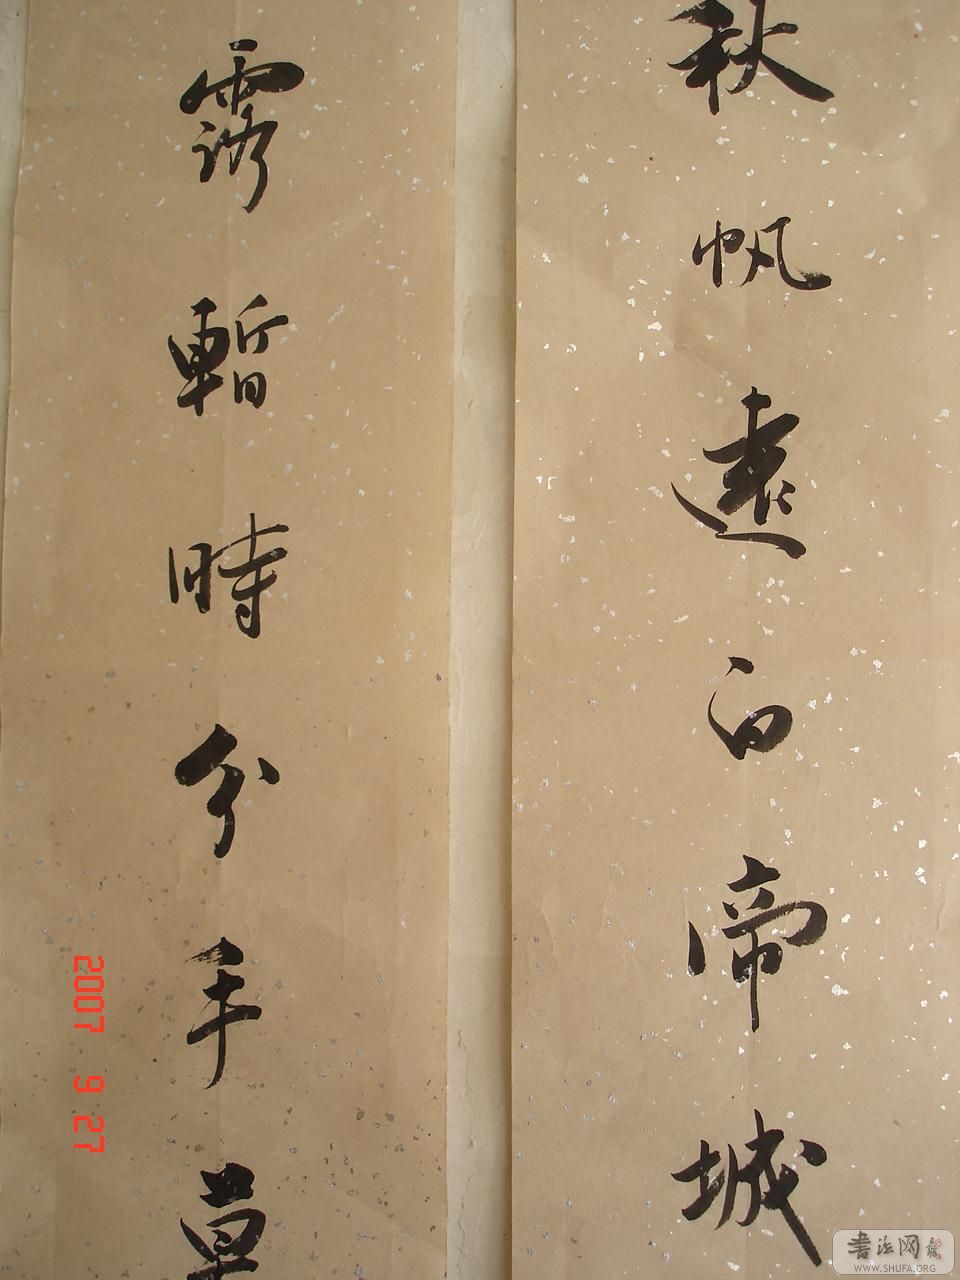 秋帆遠白帝城
露暫時分手
2007 9 27
書法网
WWW.SHUFA.ORG